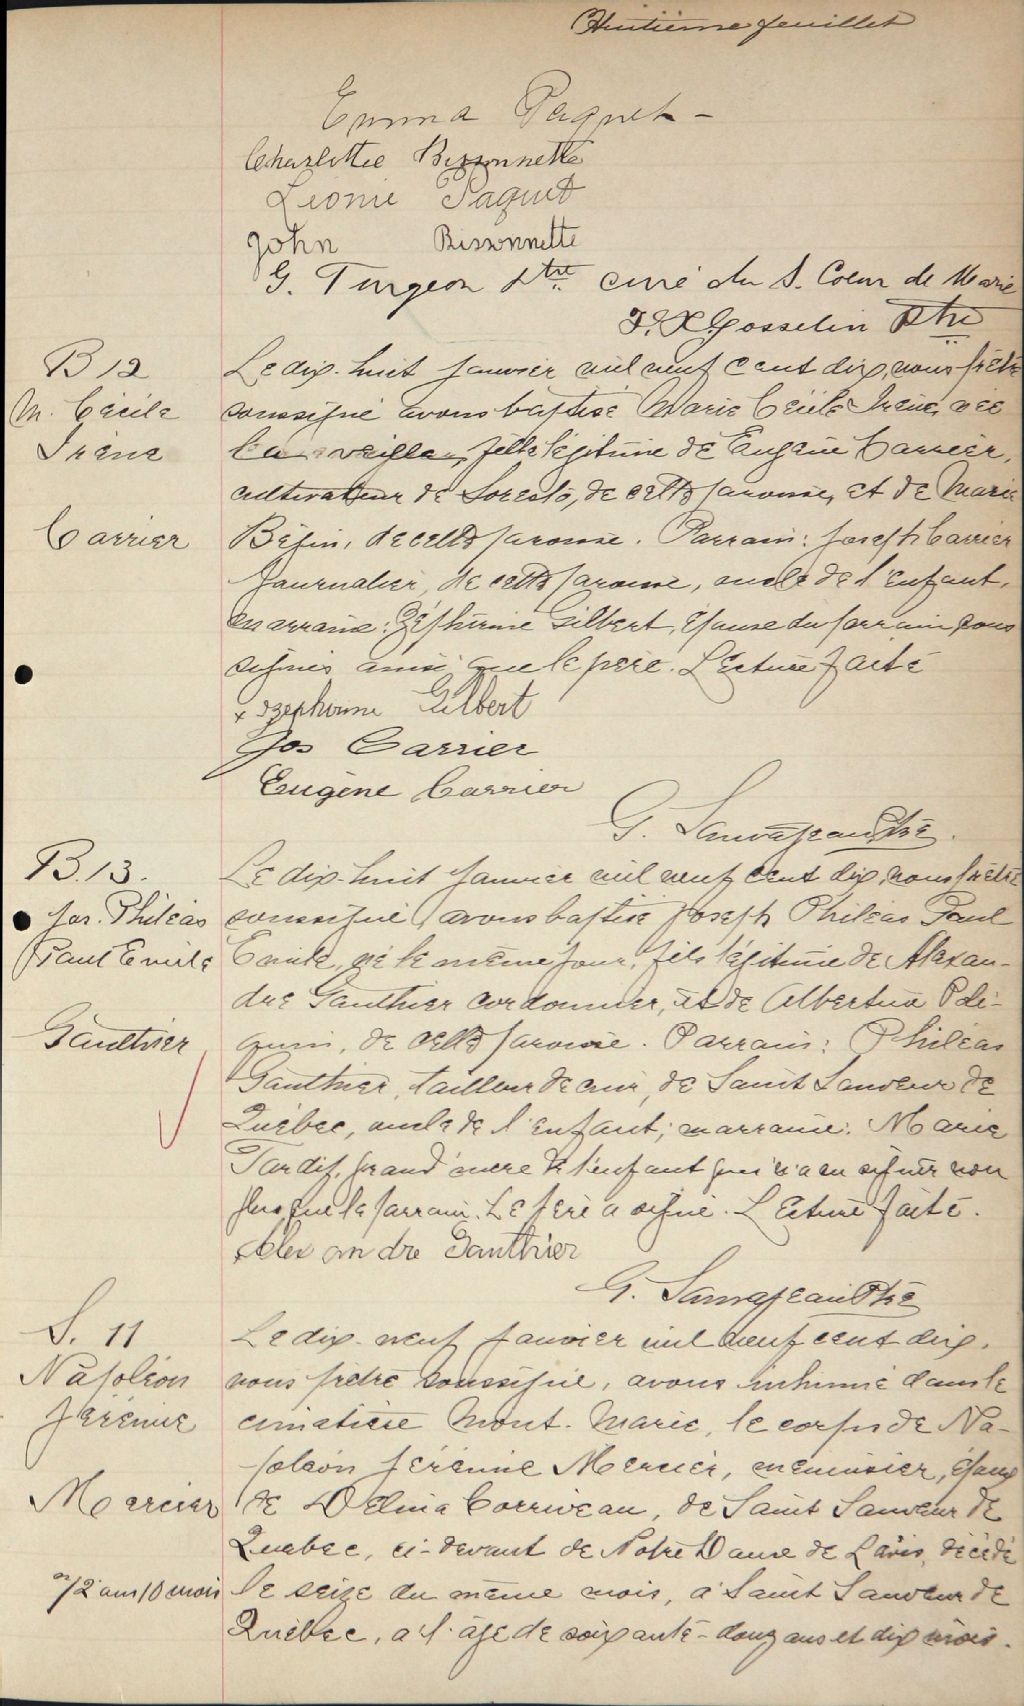 Huitième feuillet
Emma Paquet -
Charlotte Bissonnette
Léonie Paquet
John Bissonnette
G. Turgeon Ptre curé du S. Coeur de Marie
F. X. Gosselin Ptre
B 12
M. Cécile
Irène
Carrier
Le dix-huit janvier mil neuf cent dix, nous prêtre
soussigné avons baptisé Marie Cécile Irène, née
la veille, fille légitime de Eugène Carrier,
cultivateur de cette paroisse, et de Marie
Bégin, de cette paroisse. Parrain: Joseph Carrier
journalier, de cette paroisse, oncle de l'enfant,
marraine: Zéphirine Gilbert, épouse du parrain, sous
signés ainsi que le père. Lecture faite
x Ozephirine Gilbert
Jos Carrier
Eugène Carrier
G. Sauvageau Ptre.
B. 13.
Jos. Philéas
Paul Emile
Gauthier
Le dix-huit janvier mil neuf cent dix, nous prêtre
soussigné, avons baptisé Joseph Philéas Paul
Emile, né le même jour, fils légitime de Alexan-
dre Gauthier cordonnier, et de Albertine Poli-
quin, de cette paroisse. Parrain: Philéas
Gauthier, tailleur de cuir, de Saint Sauveur de
Québec, oncle de l'enfant; marraine: Marie
Tardif, grand'mere de l'enfant qui n'a su signer non
plus que le parrain. Le père a signé. Lecture faite.
Alexandre Gauthier
G. Sauvageau Ptre
S. 11
Napoléon
Jérémie
Mercier
72 ans 10 mois
Le dix-neuf janvier mil neuf cent dix,
nous prêtre soussigné, avons inhumé dans le
cimetière Mont-Marie, le corps de Na-
poléon Jérémie Mercier, menuisier, époux
de Delina Corriveau, de Saint Sauveur de
Québec, ci-devant de Notre Dame de Lévis, décédé
le seize du même mois, à Saint Sauveur de
Québec, à l'âge de soixante-douze ans et dix mois.